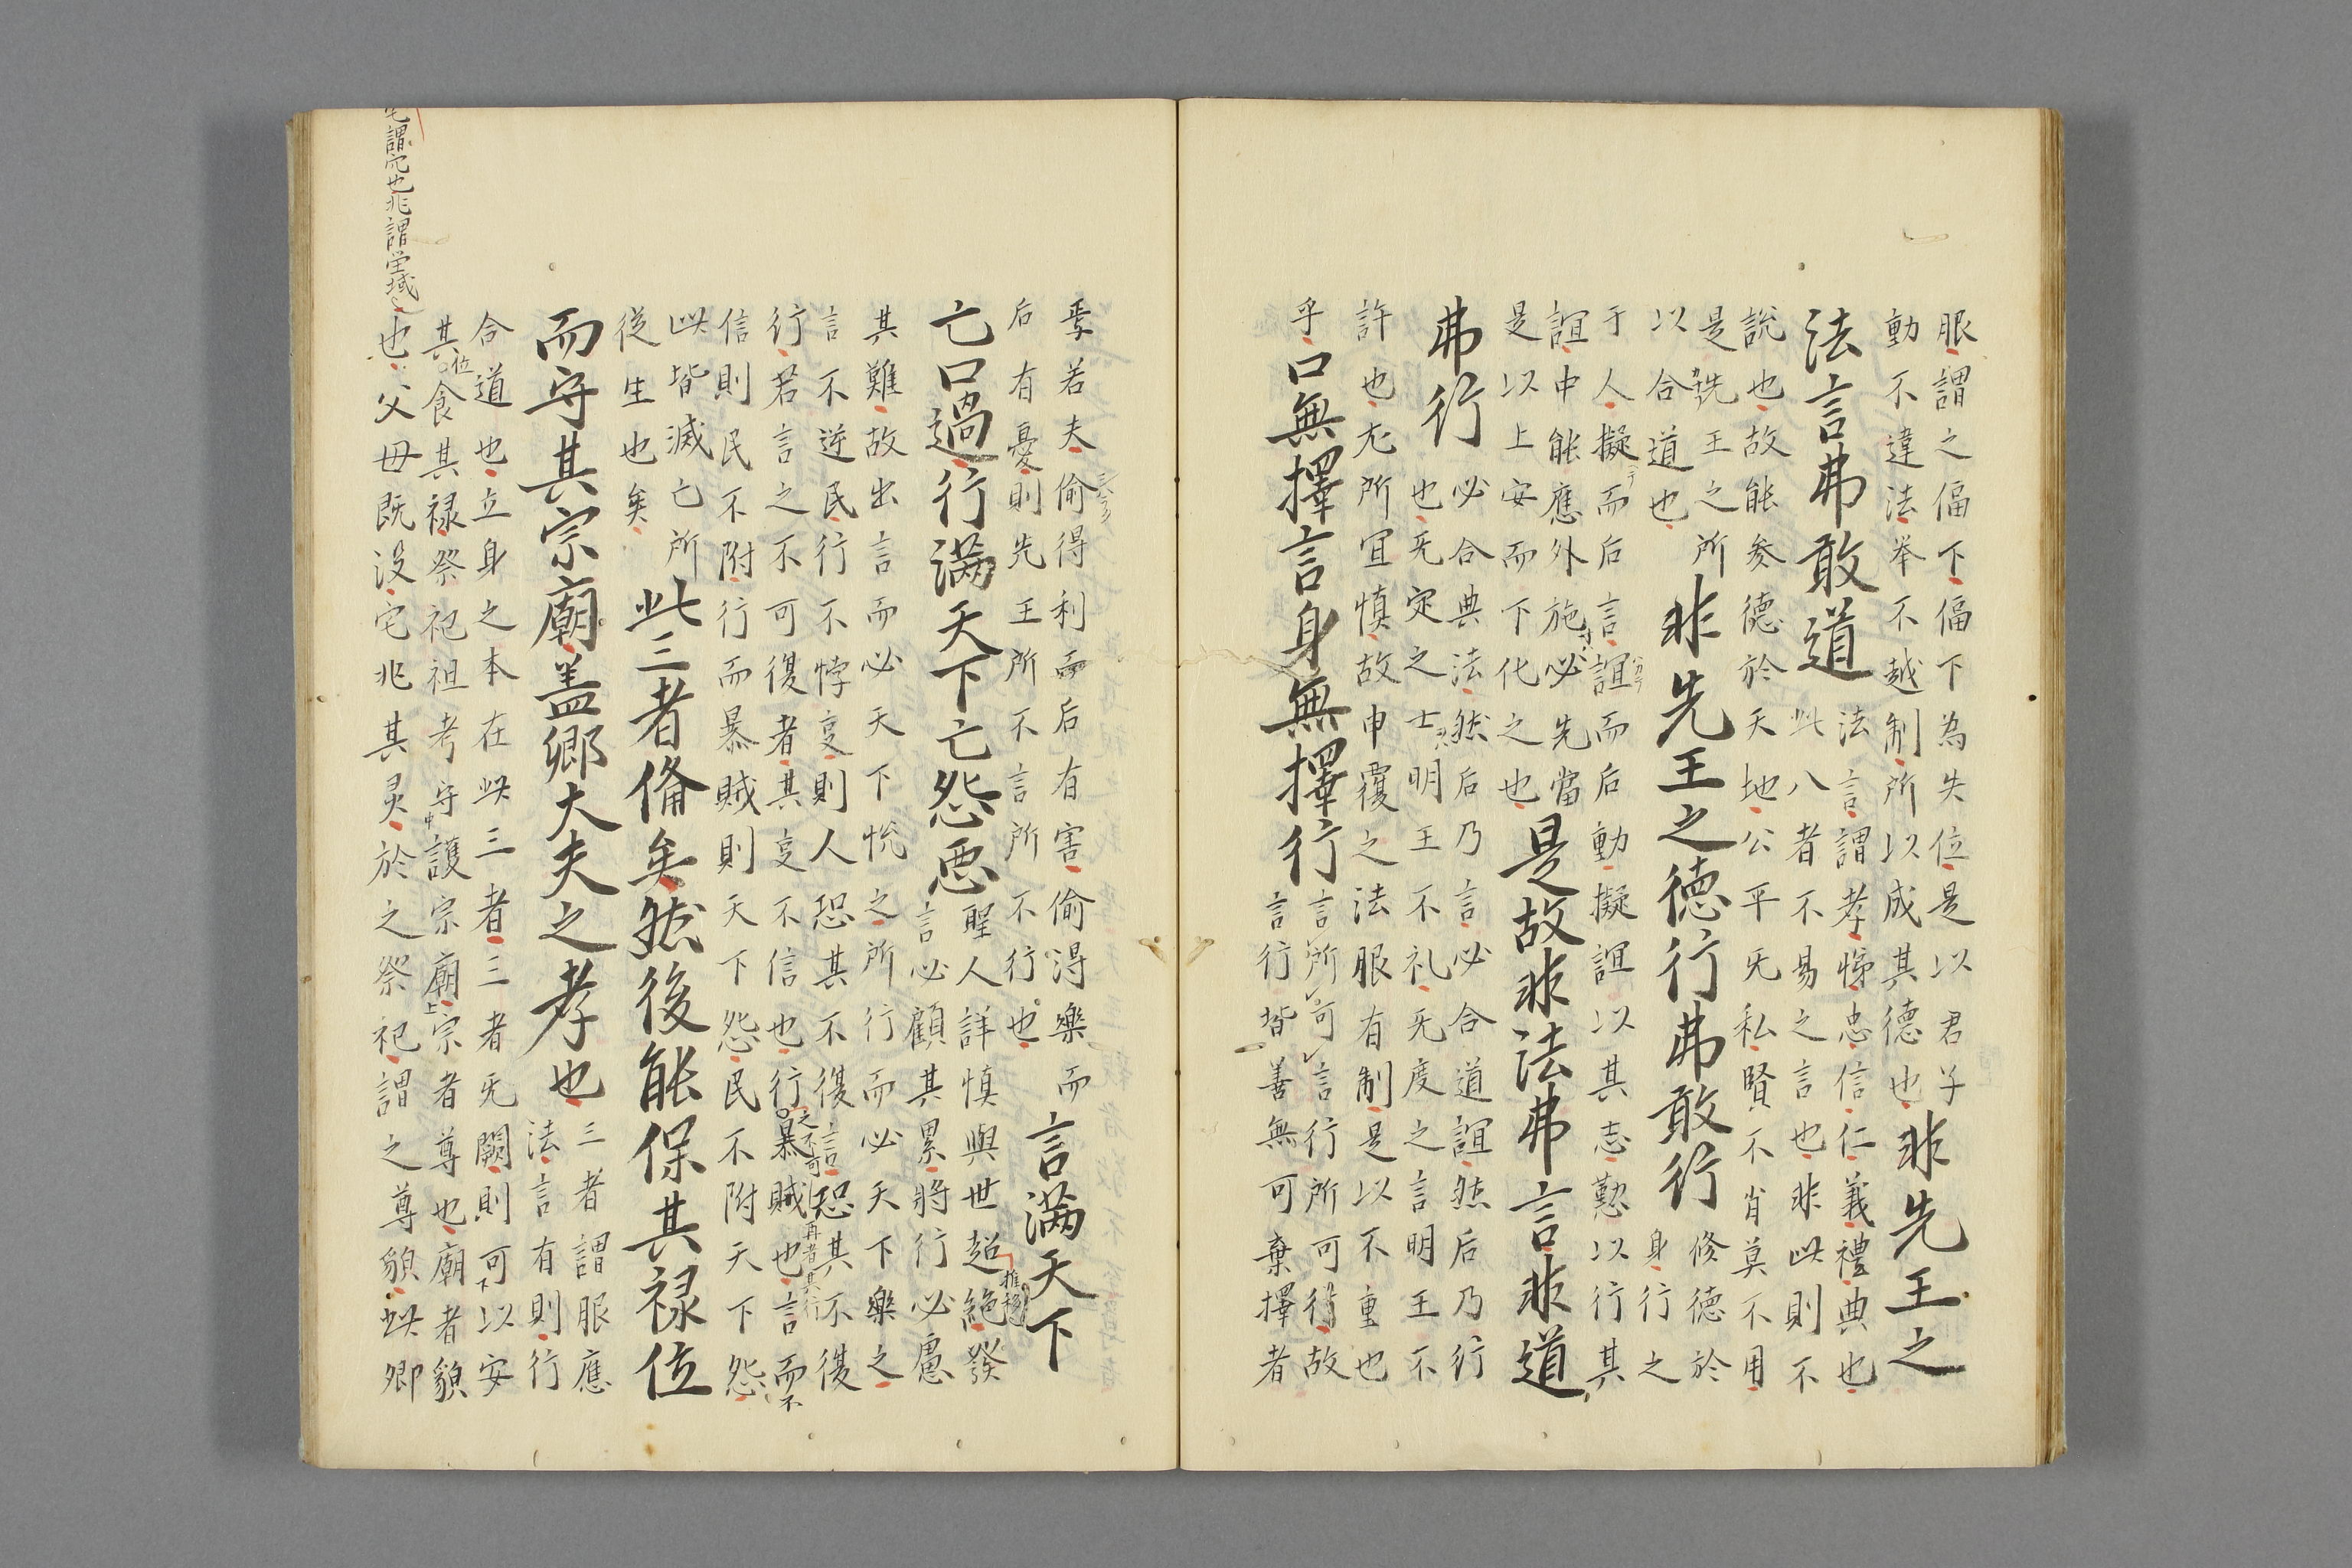 服謂之偪下偪下為失位是以君子
動不違法举不越制所以成其德也
非先王之
法言弗敢道
法言謂孝悌忠信仁義禮典也
此八者不易之言也非此則不
說也故能參德於天地公平无私賢不肖莫不用
是先王之所
以合道也
非先王之德行弗敢行
修德於
身行之
于人擬而后言誼而后動擬誼以其志懃以行其
誼中能應外施必先當
是以上安而下化之也
是故非法弗言非道
弗行
必合典法然后乃言必合道誼然后乃行
也无定之士明王不礼无度之言明王不
許也尤所宜慎故申覆之法服有制是以不重也
乎
口無擇言身無擇行
言所可言行所可行故
言行皆善無可棄擇者
若夫偷得利而后有害偷得樂而
后有憂則先王所不言所不行也
言満天下
亡口過行満天下亡怨悪
聖人詳慎與世超絶發
言必顧其累將行必慮
其難故出言而必天下悅之所行而必天下樂之
言不逆民行不悖則人恐其不復言恐其不復
行若言之不可復者其不信也行之不可再者其行
暴賊也言而不
信則民不附行而暴賊則天下怨民不附天下怨
此皆滅亡所
從生也矣
此三者俻矣然後能保其禄位
而守其宗廟盖卿大夫之孝也
三者謂服應
法言有則行
合道也立身之本在此三者三者无闕則可以安
其位食其禄祭祀祖考守護宗廟宗者尊也廟者貌
也父母既没宅兆其灵於之祭祀謂之尊貌此卿
宅謂穴也兆謂塋域